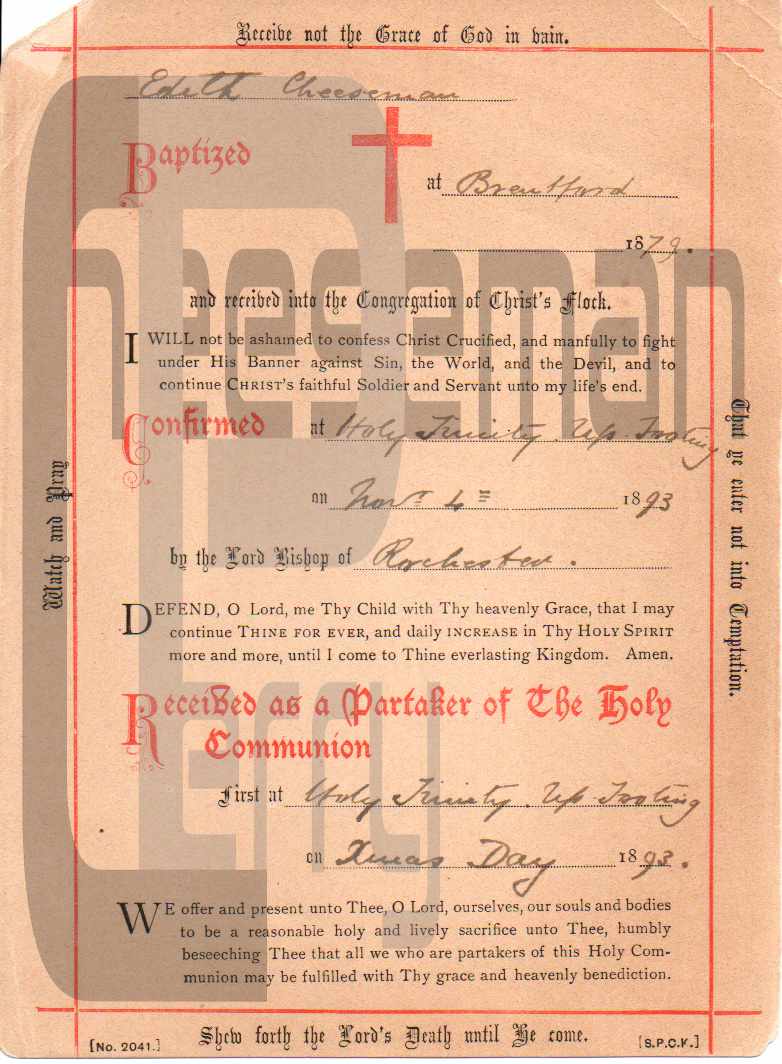 Receive not the Grace of God in vain.
Edith Cheeseman
Baptized
at Brentford
1879.
and received into the Congregation of Christ's Flock.
I WILL not be ashamed to confess Christ Crucified, and manfully to fight
under His Banner against Sin, the World, and the Devil, and to
continue CHRIST'S faithful Soldier and Servant unto my life's end.
Confirmed at Holy Trinity. Up. Tooting
on Novr 4th 1893
by the Lord Bishop of Rochester.
DEFEND, O Lord, me Thy Child with Thy heavenly Grace, that I may
continue THINE FOR EVER, and daily INCREASE in Thy HOLY SPIRIT
more and more, until I come to Thine everlasting Kingdom. Amen.
Received as a Partaker of The Holy
Communion
First at Holy Trinity. Up. Tooting
on Xmas Day 1893.
WE offer and present unto Thee, O Lord, ourselves, our souls and bodies
to be a reasonable holy and lively sacrifice unto Thee, humbly
beseeching Thee that all we who are partakers of this Holy Com-
munion may be fulfilled with Thy grace and heavenly benediction.
Shew forth the Lord's Death until He come.
[No. 2041.]
[S.P.C.K.]
Watch and Pray
That ye enter not into Temptation.
Cheeseman